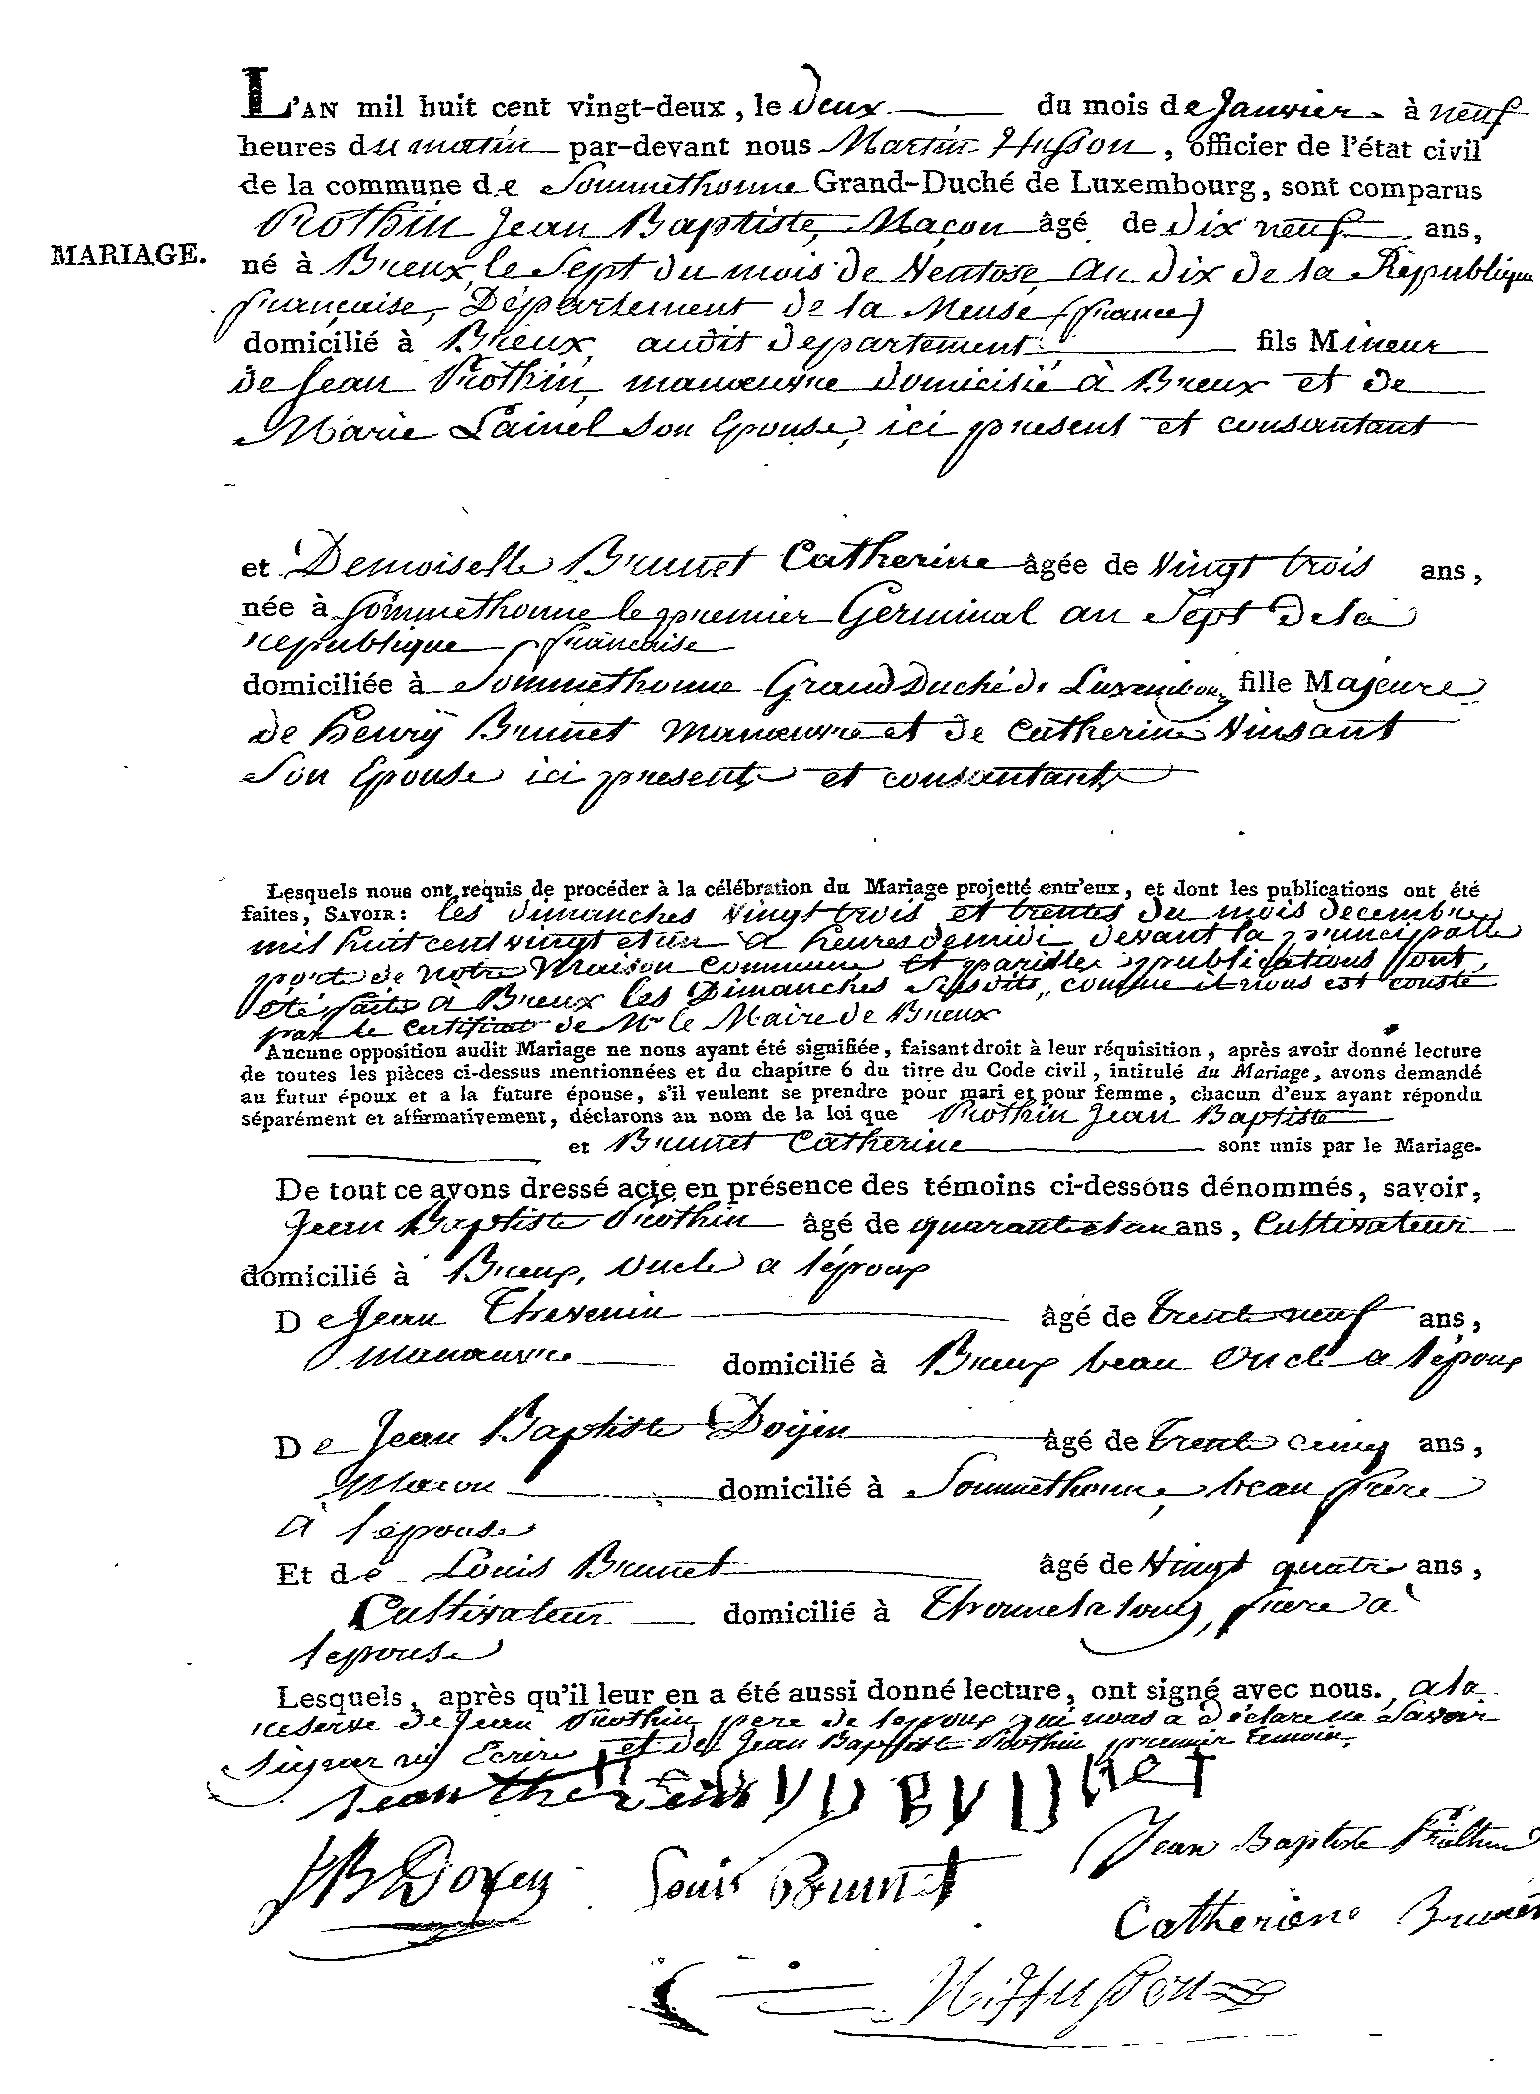 L'AN mil huit cent vingt-deux, le deux du mois de Janvier à neuf
heures du matin par-devant nous Martin Husson, officier de l'état civil
de la commune de Sommethonne Grand-Duché de Luxembourg, sont comparus
Prothin Jean Baptiste, Maçon âgé de dix neuf ans,
MARIAGE.
né à Breux, le Sept du mois de Ventose an dix de la République
française, Département de la Meuse (france)
domicilié à Breux, audit departement fils Mineur
de Jean Prothin, manœuvre domicilié à Breux et de
Marie Lainel son Epouse, ici present et consantant
et Demoiselle Brunet Catherine âgée de Vingt trois ans,
née à Sommethonne le premier Germinal an Sept de la
republique française
domiciliée à Sommethonne Grand Duché de Luxembourg fille Majeure
de henrÿ Brunet manœuvre et de Catherine Vinsant
son Epouse ici present et consantant
Lesquels nous ont requis de procéder à la célébration du Mariage projetté entr'eux, et dont les publications ont été
faites, SAVOIR: les dimanches vingt trois et trentes du mois decembre
mil huit cent vingt et un a heures de midi devant la principalle
porte de notre Maison commune et pareilles publications sont
été faites à Breux les Dimanches susdits, comme il nous est consté
par le certificat de Mr le Maire de Breux
Aucune opposition audit Mariage ne nous ayant été signifiée, faisant droit à leur réquisition, après avoir donné lecture
de toutes les pièces ci-dessus mentionnées et du chapitre 6 du titre du Code civil, intitulé du Mariage, avons demandé
au futur époux et a la future épouse, s'il veulent se prendre pour mari et pour femme, chacun d'eux ayant répondu
séparément et affirmativement, déclarons au nom de la loi que Prothin Jean Baptiste
et Brunet Catherine sont unis par le Mariage.
De tout ce avons dressé acte en présence des témoins ci-dessous dénommés, savoir,
Jean Baptiste Prothin âgé de quarante et un ans, Cultivateur
domicilié à Breux, oncle a l'époux
De Jean Thevenin âgé de trente neuf ans,
manœuvre domicilié à Breux beau oncle a l'époux
De Jean Baptiste Doijen âgé de trente cinq ans,
Macon domicilié à Sommethonne, beau frere
à l'epouse
Et de Louis Brunet âgé de Vingt quatre ans,
Cultivateur domicilié à Thonne la long, frere à
l'epouse
Lesquels, après qu'il leur en a été aussi donné lecture, ont signé avec nous. a la
reserve de Jean Prothin pere de l'epoux qui nous a déclaré ne savoir
signer nij Ecrire et de Jean Baptiste Prothin premier temoin.
Jean thevenin BRUnet
JB Doyen Louis Brunet Jean Baptiste Prothin
Catherine Brunet
M. Husson